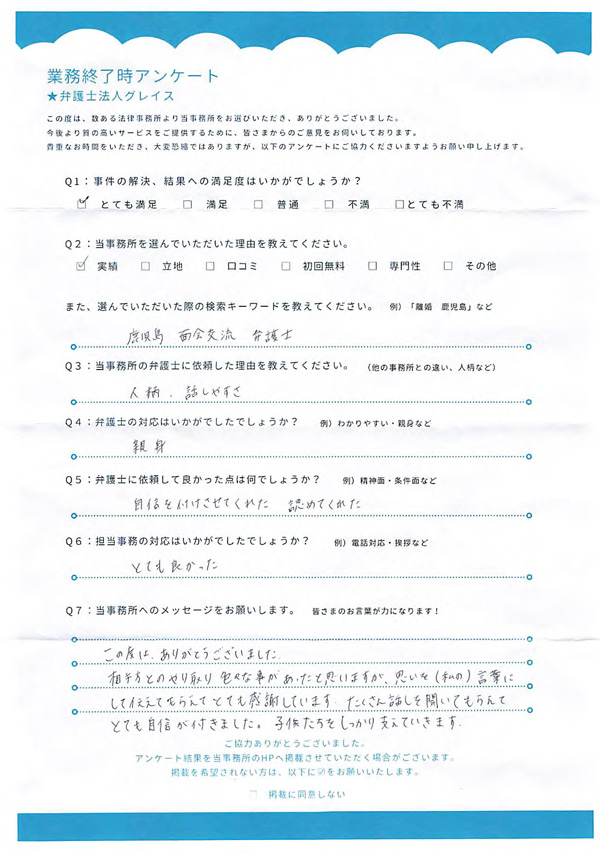 業務終了時アンケート
★弁護士法人グレイス
この度は、数ある法律事務所より当事務所をお選びいただき、ありがとうございました。
今後より質の高いサービスをご提供するために、皆さまからのご意見をお伺いしております。
貴重なお時間をいただき、大変恐縮ではありますが、以下のアンケートにご協力くださいますようお願い申し上げます。
Q1：事件の解決、結果への満足度はいかがでしょうか？
☑ とても満足 □ 満足 □ 普通 □ 不満 □とても不満
Q2：当事務所を選んでいただいた理由を教えてください。
☑ 実績 □ 立地 □ 口コミ □ 初回無料 □ 専門性 □ その他
また、選んでいただいた際の検索キーワードを教えてください。 例）「離婚 鹿児島」など
鹿児島 面会交流 弁護士
Q3：当事務所の弁護士に依頼した理由を教えてください。 （他の事務所との違い、人柄など）
人柄、話しやすさ
Q4：弁護士の対応はいかがでしたでしょうか？ 例）わかりやすい・親身など
親身
Q5：弁護士に依頼して良かった点は何でしょうか？ 例）精神面・条件面など
自信を付けさせてくれた 認めてくれた
Q6：担当事務の対応はいかがでしたでしょうか？ 例）電話対応・挨拶など
とても良かった
Q7：当事務所へのメッセージをお願いします。 皆さまのお言葉が力になります！
この度は、ありがとうございました。
相手方とのやり取り 色々な事があったと思いますが、思いを(私の)言葉に
して伝えてもらえて とても感謝しています。たくさん話しを聞いてもらえて
とても自信が付きました。子供たちをしっかり支えていきます。
ご協力ありがとうございました。
アンケート結果を当事務所のHPへ掲載させていただく場合がございます。
掲載を希望されない方は、以下に☑をお願いいたします。
□ 掲載に同意しない